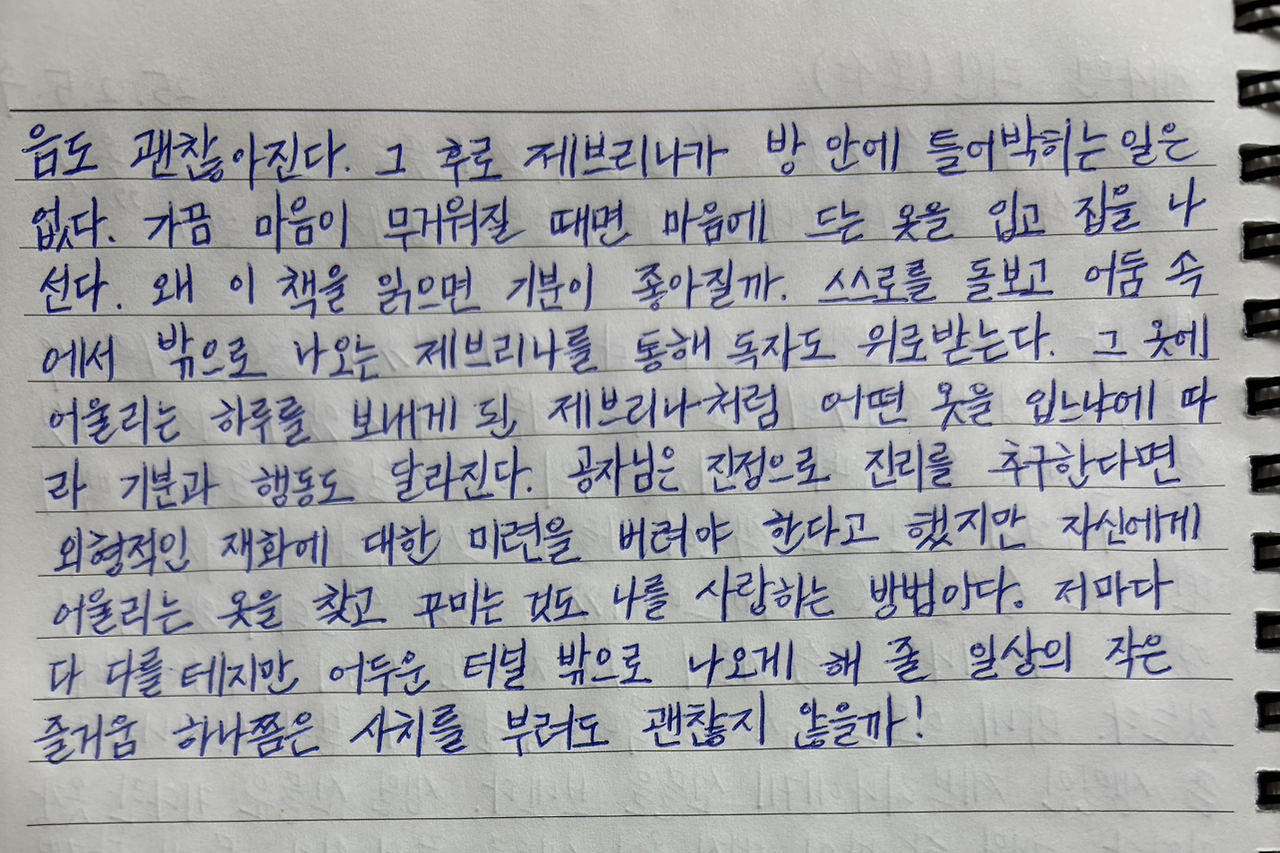 음도 괜찮아진다. 그 후로 제브리나가 방 안에 틀어박히는 일은
없다. 가끔 마음이 무거워질 때면 마음에 드는 옷을 입고 집을 나
선다. 왜 이 책을 읽으면 기분이 좋아질까. 스스로를 돌보고 어둠 속
에서 밖으로 나오는 제브리나를 통해 독자도 위로받는다. 그 옷에
어울리는 하루를 보내게 된 제브리나처럼 어떤 옷을 입느냐에 따
라 기분과 행동도 달라진다. 공자님은 진정으로 진리를 추구한다면
외형적인 재화에 대한 미련을 버려야 한다고 했지만 자신에게
어울리는 옷을 찾고 꾸미는 것도 나를 사랑하는 방법이다. 저마다
다 다를 테지만 어두운 터널 밖으로 나오게 해 줄 일상의 작은
즐거움 하나쯤은 사치를 부려도 괜찮지 않을까!